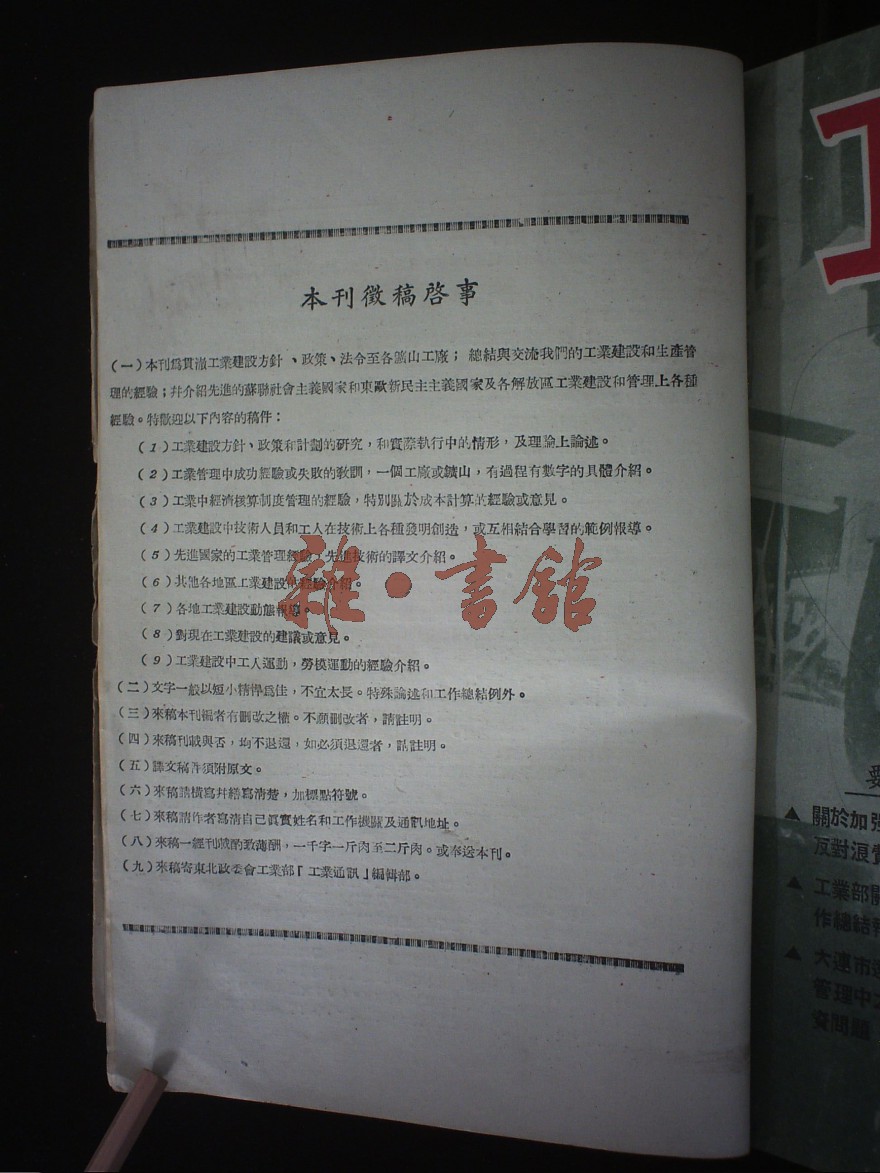 本刊徵稿啓事
(一)本刊爲貫澈工業建設方針、政策、法令至各鑛山工廠；總結與交流我們的工業建設和生產管
理的經驗；幷介紹先進的蘇聯社會主義國家和東歐新民主主義國家及各解放區工業建設和管理上各種
經驗。特歡迎以下內容的稿件：
(1)工業建設方針、政策和計劃的研究，和實際執行中的情形，及理論上論述。
(2)工業管理中成功經驗或失敗的教訓，一個工廠或鑛山，有過程有數字的具體介紹。
(3)工業中經濟核算制度管理的經驗，特別關於成本計算的經驗或意見。
(4)工業建設中技術人員和工人在技術上各種發明創造，或互相結合學習的範例報導。
(5)先進國家的工業管理經驗，先進技術的譯文介紹。
(6)其他各地區工業建設的經驗介紹。
(7)各地工業建設動態報導。
(8)對現在工業建設的建議或意見。
(9)工業建設中工人運動，勞模運動的經驗介紹。
(二)文字一般以短小精悍爲佳，不宜太長。特殊論述和工作總結例外。
(三)來稿本刊編者有刪改之權。不願刪改者，請註明。
(四)來稿刊載與否，均不退還，如必須退還者，請註明。
(五)譯文稿件須附原文。
(六)來稿請橫寫幷繕寫清楚，加標點符號。
(七)來稿請作者寫清自己眞實姓名和工作機關及通訊地址。
(八)來稿一經刊載酌致薄酬，一千字一斤肉至二斤肉。或奉送本刊。
(九)來稿寄東北政委會工業部「工業通訊」編輯部。
雜·書館
工
▲ 關於加強
反對浪費
▲ 工業部關
作總結
▲ 大連市
管理中
資問題